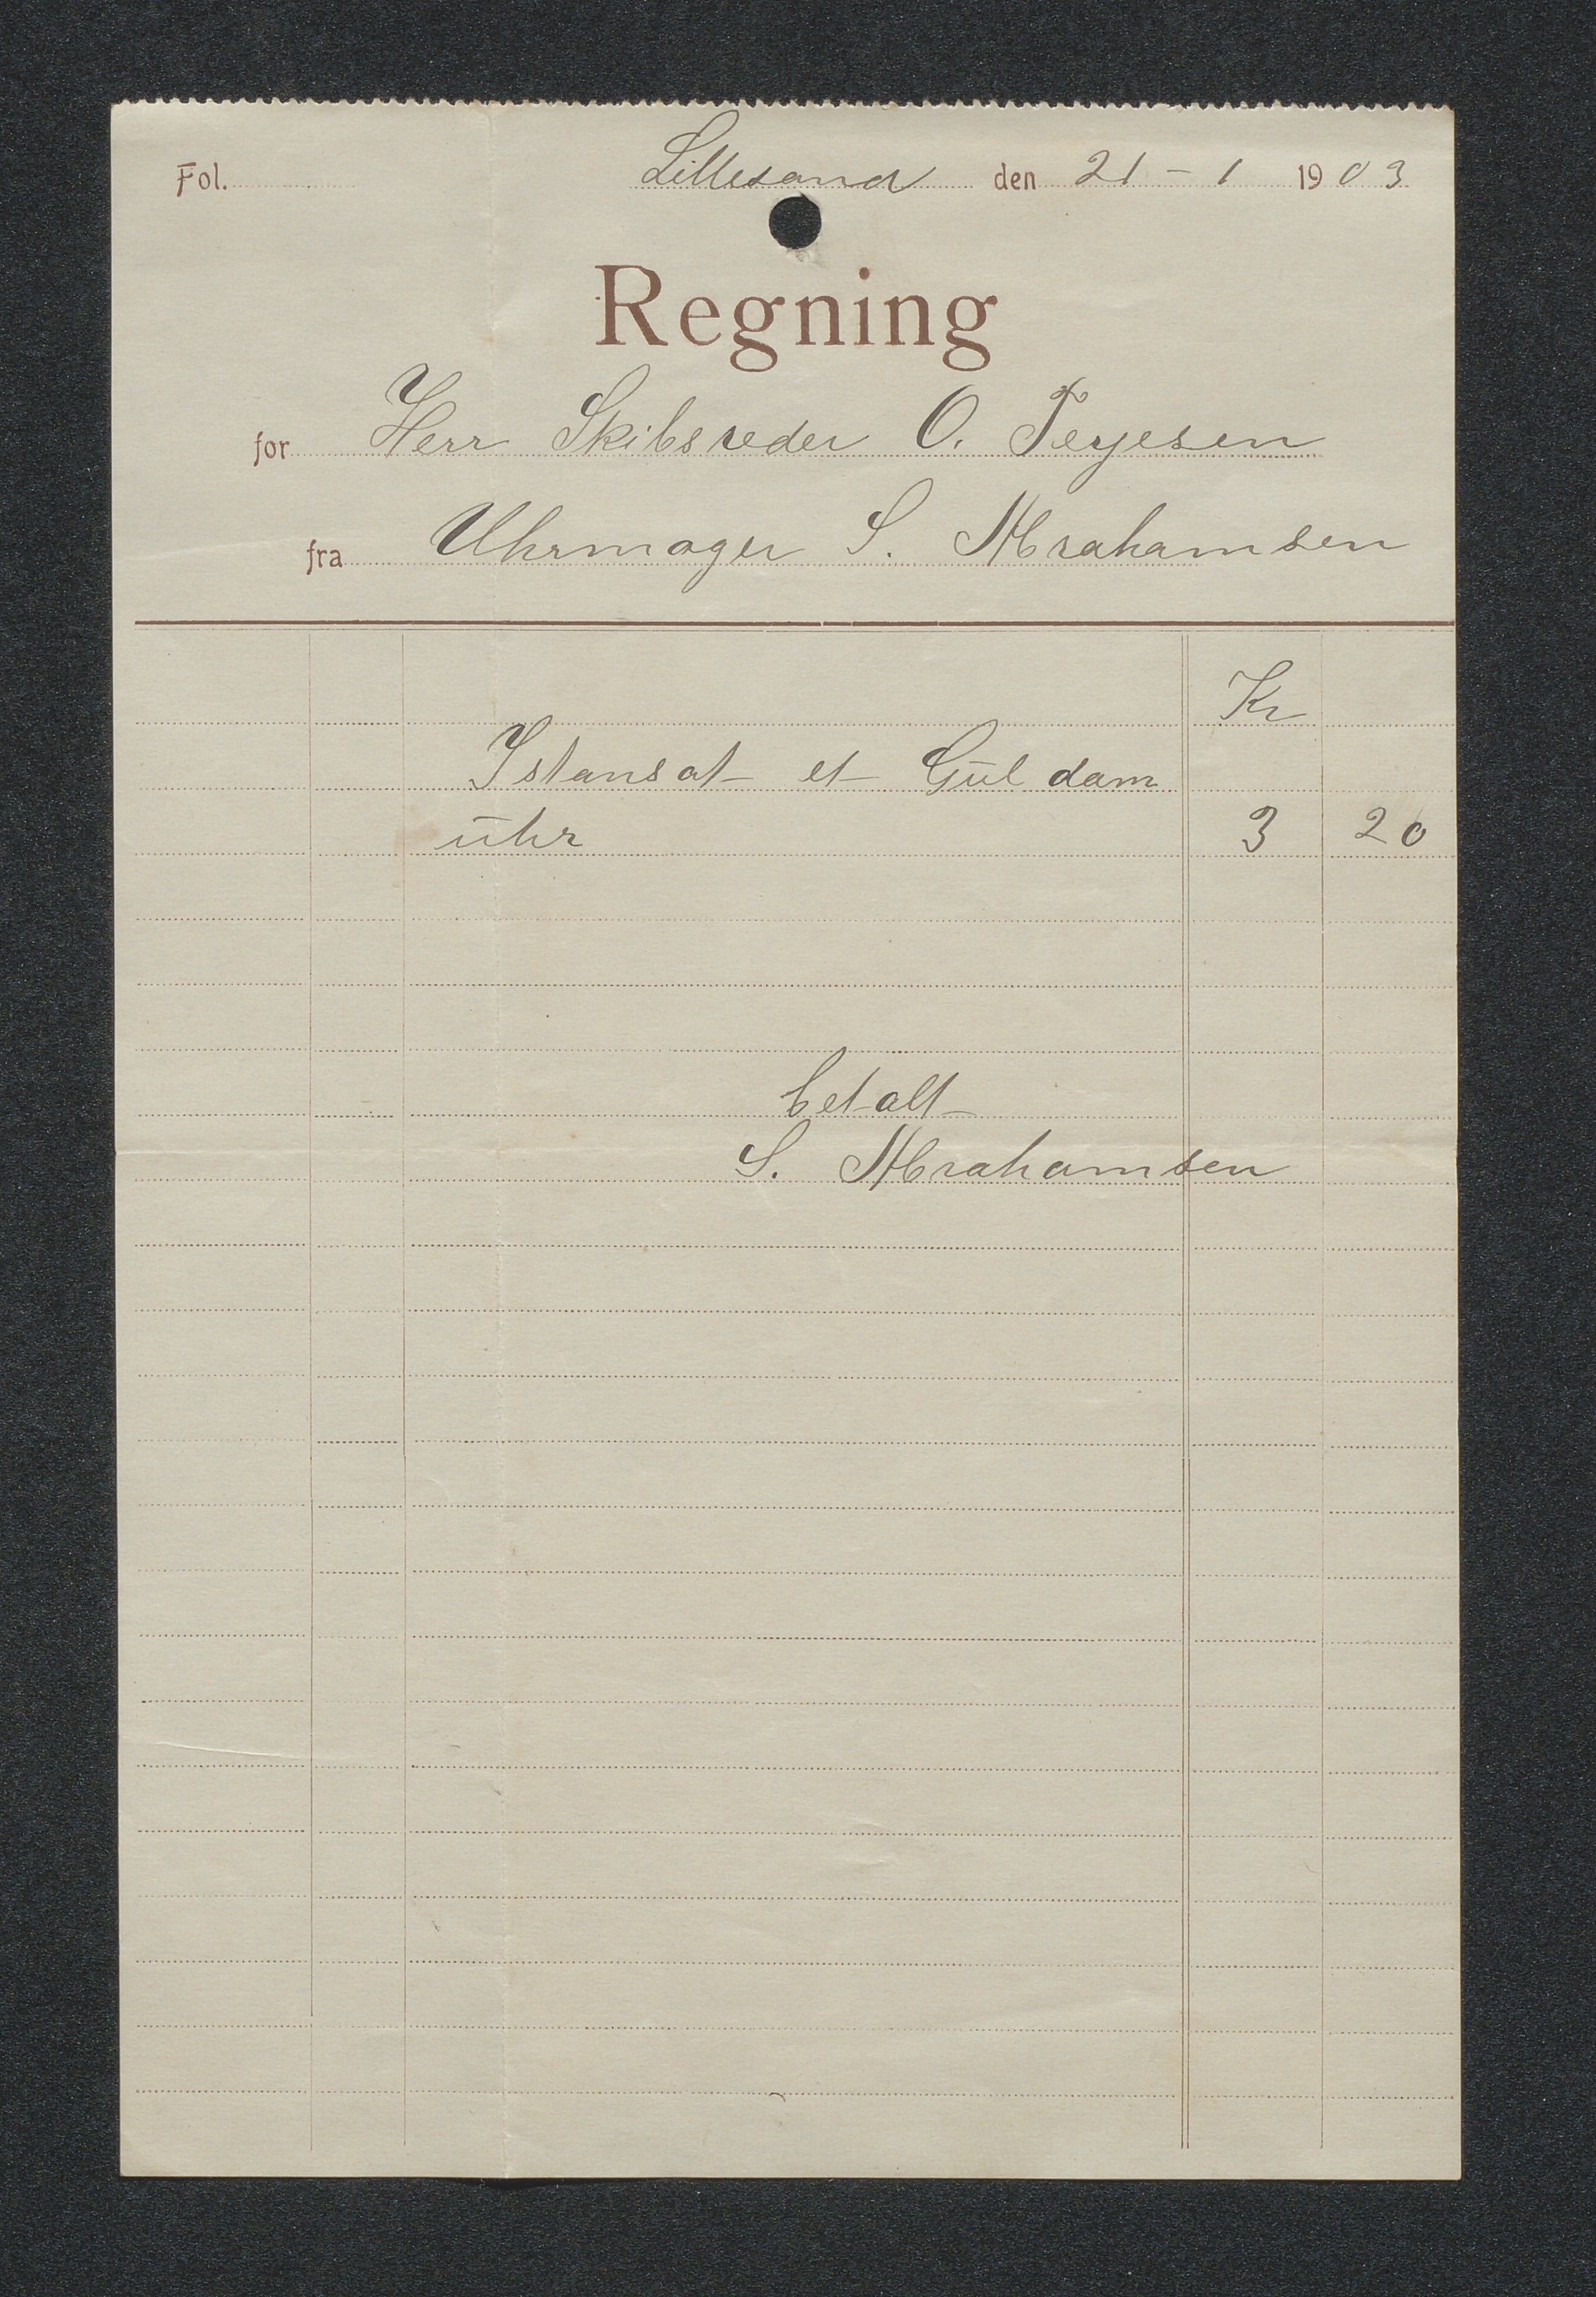 Fol. Lillesand den 21 - 1 1903
Regning
for Herr Skibsreder O. Terjesen
fra Uhrmager S. Abrahamsen
Kr
Istansat et Gŭl dam
ŭhr 3 20
betalt
S. Abrahamsen